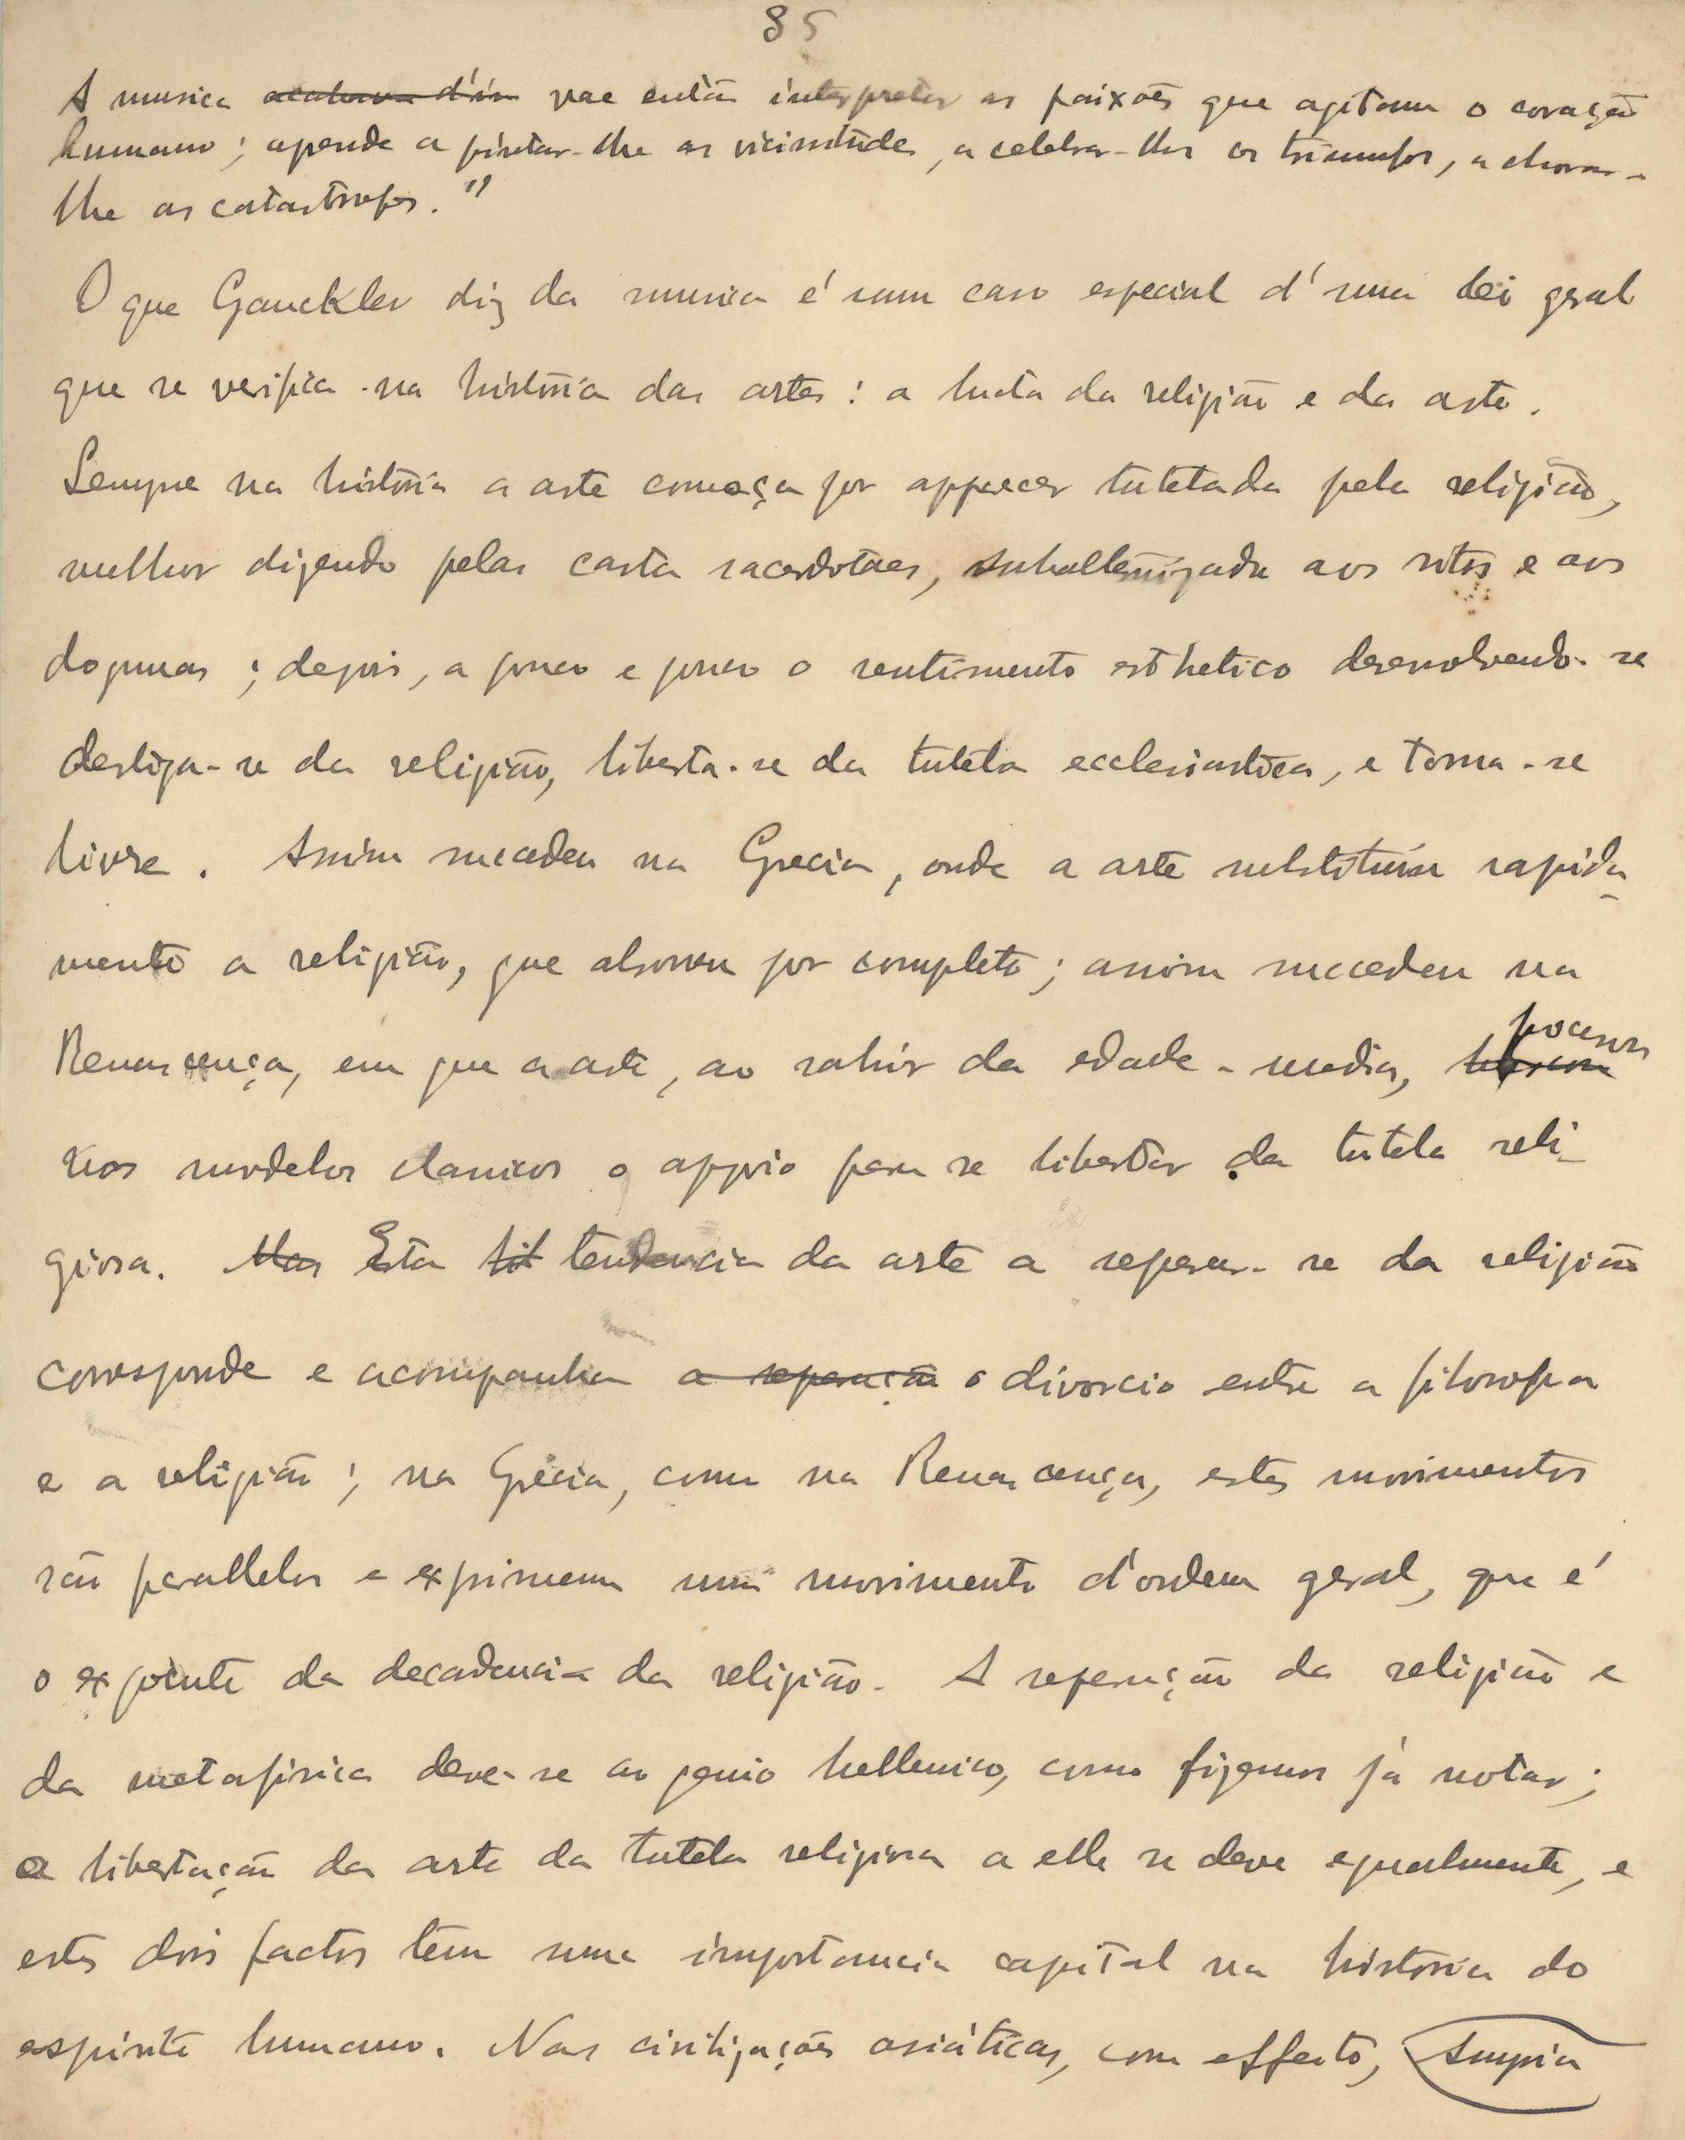 85
A musica vae então interpretar as paixões que agitam o coração
humano; aprende a pintar-lhe as vicissitudes, a celebrar-lhe os triumfos, a chorar-
lhe as catastrofes."
O que Gauckler diz da musica é um caso especial d'uma lei geral
que se verifica na história das artes: a lucta da religião e da arte.
Sempre na história a arte começa por apparecer tutelada pela religião,
melhor dizendo pelas castas sacerdotaes, subalternizada aos ritos e aos
dogmas; depois, a pouco e pouco o sentimento esthetico desenvolvendo-se
desliga-se da religião, liberta-se da tutela ecclesiastica, e torna-se
livre. Assim succedeu na Grecia, onde a arte substituiu rapida-
mente a religião, que absorveu por completo; assim succedeu na
Renascença, em que a arte, ao sahir da edade-media,
nos modelos classicos o appoio para se libertar da tutela reli-
giosa. Mas Esta tendencia da arte a separar-se da religião
corresponde e acompanha a separação o divorcio entre a filosofia
e a religião; na Grécia, como na Renascença, estes movimentos
são parallelos e exprimem um movimento d'ordem geral, que é
o expoente da decadencia da religião. A separação da religião e
da metafisica deve-se ao genio hellenico, como fizemos já notar;
a libertação da arte da tutela religiosa a elle se deve egualmente, e
estes dois factos têm uma importancia capital na história do
espirito humano. Nas civilizações asiáticas, com effeito,